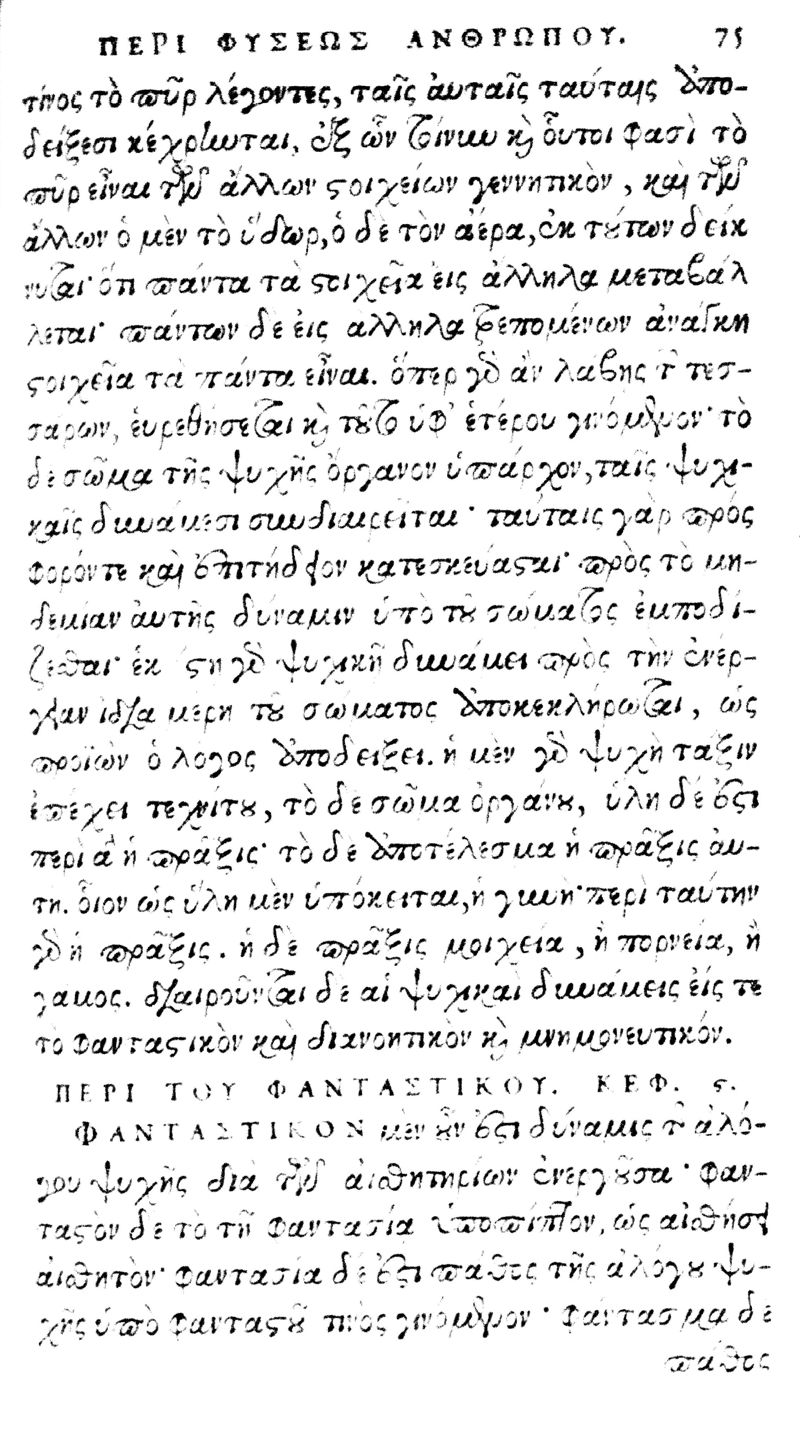 ΠΕΡΙ ΦΥΣΕΩΣ ΑΝΘΡΩΠΟΥ. 75
τίνος τὸ πῦρ λέγοντες, ταῖς ἀυταῖς ταύταις ἀπο-
δείξεσι κέχρηωται, ἐξ ὧν τοίνυν καὶ οὗτοι φασὶ τὸ
πῦρ εἶναι τῶν ἄλλων στοιχείων γεννητικὸν, καὶ τῶν
ἄλλων ὁ μὲν τὸ ὕδωρ, ὁ δὲ τὸν ἀέρα, ἐκ τούτων δείκ
νυται· ὅτι πάντα τὰ στοιχεῖα εἰς ἄλληλα μεταβάλ
λεται· πάντων δὲ εἰς αλληλα τρεπομένων ἀνάγκη
στοιχεῖα τὰ πάντα εἶναι. ὅπερ γὰρ ἀν λάβης τῶν τεσ-
σάρων, ἑυρεθήσεται καὶ τοῦτο ὑφ' ἑτέρου γινόμενον· τὸ
δὲ σῶμα τῆς ψυχῆς ὄργανον ὑπάρχον, ταῖς ψυχι-
καῖς δυνάμεσι συνδιαιρεῖται· ταύταις γὰρ πρόσ
φορόντε καὶ ἐπιτήδειον κατεσκεύασται· πρὸς τὸ μη-
δεμίαν ἀυτῆς δύναμιν ὑπὸ τοῦ σώματος ἐμποδί-
ζεσθαι· ἑκάστη γὰρ ψυχικῆ δυνάμει πρὸς τὴν ἐνέρ-
γειαν ἰδια μέρη τοῦ σώματος ἀποκεκλήρωται, ὡς
προϊὼν ὁ λογος ἀποδείξει. ἡ μὲν γὰρ ψυχὴ τάξιν
ἐπέχει τεχνίτου, τὸ δὲ σῶμα ὀργάνου, ὑλη δέ ἐστι
περὶ ἃ ἡ πρᾶξις· τὸ δὲ ἀποτέλεσμα ἡ πρᾶξις ἀυ-
τη. οἷον ὡς ὕλη μὲν ὑπόκειται, ἡ γυνή· περὶ ταύτην
γὰρ ἡ πρᾶξις. ἡ δὲ πρᾶξις μοιχεία, ἢ πορνεία, ἢ
γαμος. διαιροῦνται δὲ αἱ ψυχικαὶ δυνάμεις εἰς τε
τὸ φανταστικὸν καὶ διανοητικὸν καὶ μνημονευτικόν.
ΠΕΡΙ ΤΟΥ ΦΑΝΤΑΣΤΙΚΟΥ. ΚΕΦ. ϛ.
ΦΑΝΤΑΣΤΙΚΟΝ μὲν οὖν ἐστι δύναμις τῆς ἀλό-
γου ψυχῆς διὰ τῶν αἰσθητηρίων ἐνεργοῦσα· φαν-
ταστὸν δὲ τὸ τῆ φαντασία ὑποπίπτον, ὡς αἰσθήσει
αἰσθητὸν· φαντασία δέ ἐστι πάθος τῆς ἀλόγου ψυ-
χῆς ὑπὸ φανταστοῦ τινὸς γινόμενον· φάντασμα δὲ
πάθος